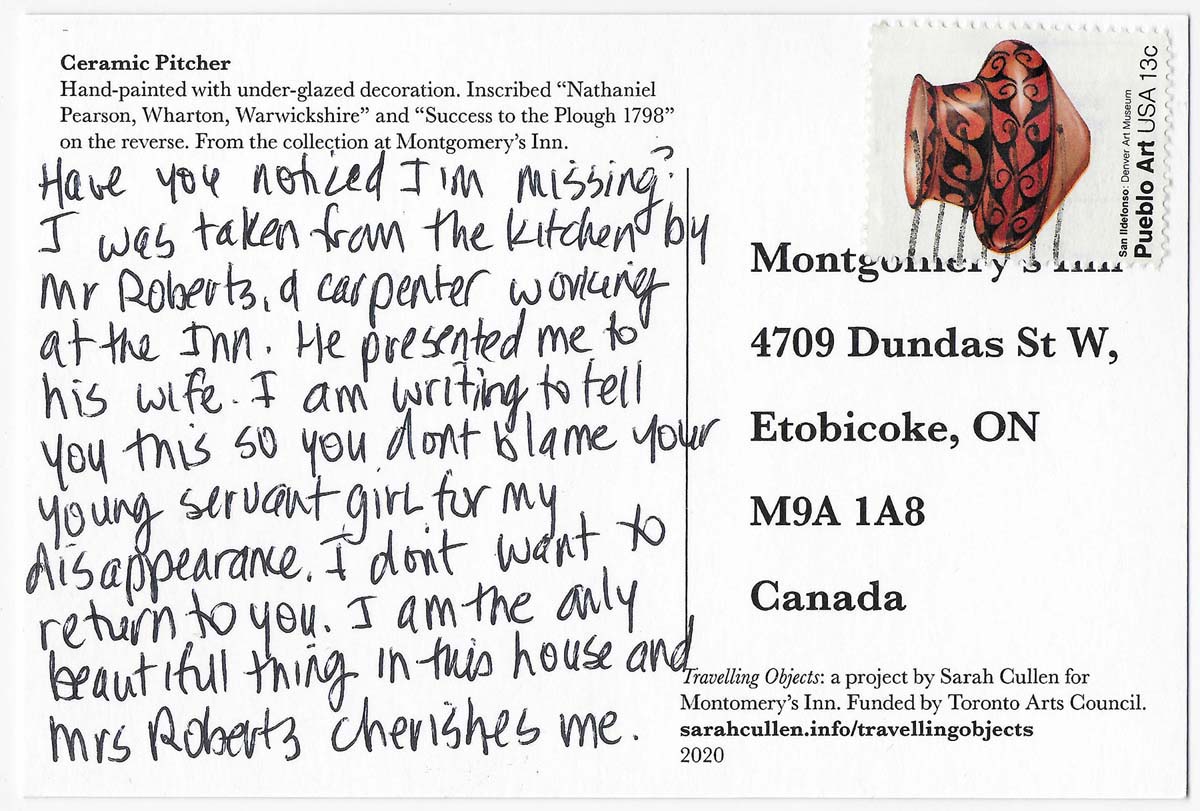 Ceramic Pitcher
Hand-painted with under-glazed decoration. Inscribed “Nathaniel
Pearson, Wharton, Warwickshire” and “Success to the Plough 1798”
on the reverse. From the collection at Montgomery’s Inn.
Have you noticed I'm missing?
I was taken from the kitchen by
Mr Roberts, a carpenter working
at the Inn. He presented me to
his wife. I am writing to tell
you this so you dont blame your
young servant girl for my
disappearance. I don't want to
return to you. I am the only
beautifull thing in this house and
Mrs Roberts cherishes me.
San Ildefonso: Denver Art Museum
Pueblo Art USA 13c
Montgomery’s Inn
4709 Dundas St W,
Etobicoke, ON
M9A 1A8
Canada
Travelling Objects: a project by Sarah Cullen for
Montomery’s Inn. Funded by Toronto Arts Council.
sarahcullen.info/travellingobjects
2020